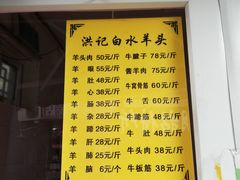 洪记白水羊头
羊头肉 50元/斤 牛腱子 78元/斤
羊 眼 55元/斤 酱羊肉 75元/斤
羊 肚 48元/斤 牛窝骨筋 60元/斤
羊 心 38元/斤 牛蹄筋 60元/斤
羊 肠 38元/斤 牛 舌 60元/斤
羊 杂 28元/斤 牛 筋 48元/斤
羊 蹄 28元/斤 牛 肚 48元/斤
羊 肝 28元/斤 牛头肉 38元/斤
羊 肺 25元/斤 牛板筋 38元/斤
羊 脑 6元/个